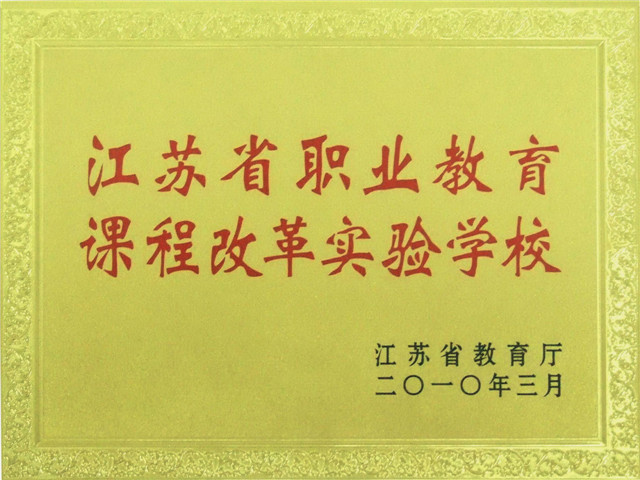 江苏省职业教育
课程改革实验学校
江苏省教育厅
二〇一〇年三月